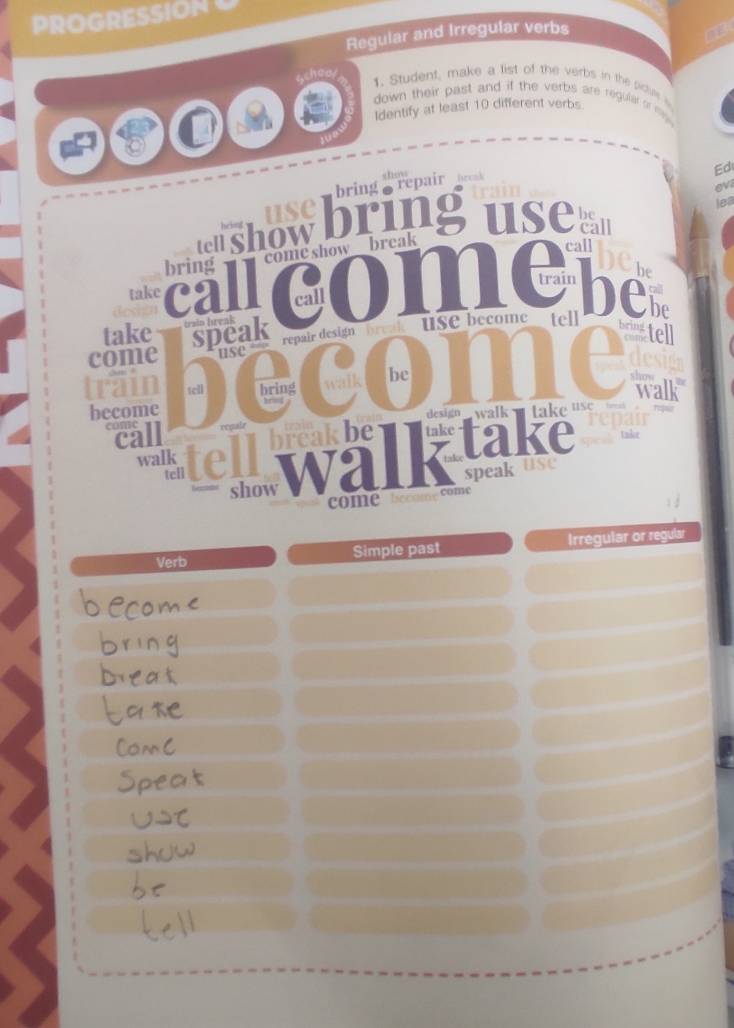 PROGRESSION
Regular and Irregular verbs
School management
1. Student, make a list of the verbs in the picture
down their past and if the verbs are regular or
Identify at least 10 different verbs.
show
bring repair break
use bring train
tell show use be
call
come show break call be
bring
take call come train be be
design call
take speak repair design break use become tell bring tell
come use become design
train tell bring walk be show
become walk
come repair train design walk take use repair
call break be take take speak take
walk tell walk speak use
tell show come become come
Verb Simple past Irregular or regular
become
bring
break
take
come
Speak
use
show
be
tell